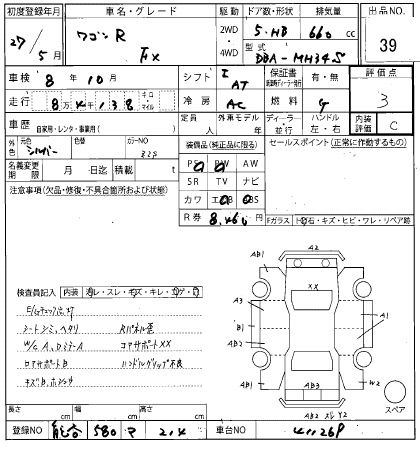 初度登録年月 車名・グレード 駆動 ドア数・形状 排気量 出品NO
27/5月 ワゴンR FX 2WD・4WD 5・HB 660 cc 39
型式 DBA-MH34S
車検 8年10月 シフト I AT 保証書 有・無 評価点 3
走行 8万4千138 キロ マイル 冷房 AC 燃料 G
車歴 自家用・レンタ・事業用( ) 定員 人 外車モデル 年 ディーラー・並行 ハンドル 左・右 内装評価 C
外色 元色 シルバー 色替 カラーNO 装備品(純正品に限る) セールスポイント(正常に作動するもの)
名義変更期限 月 日迄 積載 t PS PW AW
注意事項(欠品・修復・不具合箇所および状態) SR TV ナビ
カワ エアB ABS
R券 8,460 Fガラス 飛石・キズ・ヒビ・ワレ・リペア跡
検査員記入 内装
シートシミ、ヘタリ
W/C A、Dミラ-A コアサポートXX
ロアサポートB ハンドルグリップ不良
A2
AB1 AB1
XX
A3 A1
B1
AB2
AB1 W2
AB3
スペア
長さ cm 幅 cm 高さ cm
登録NO 車台NO 411268